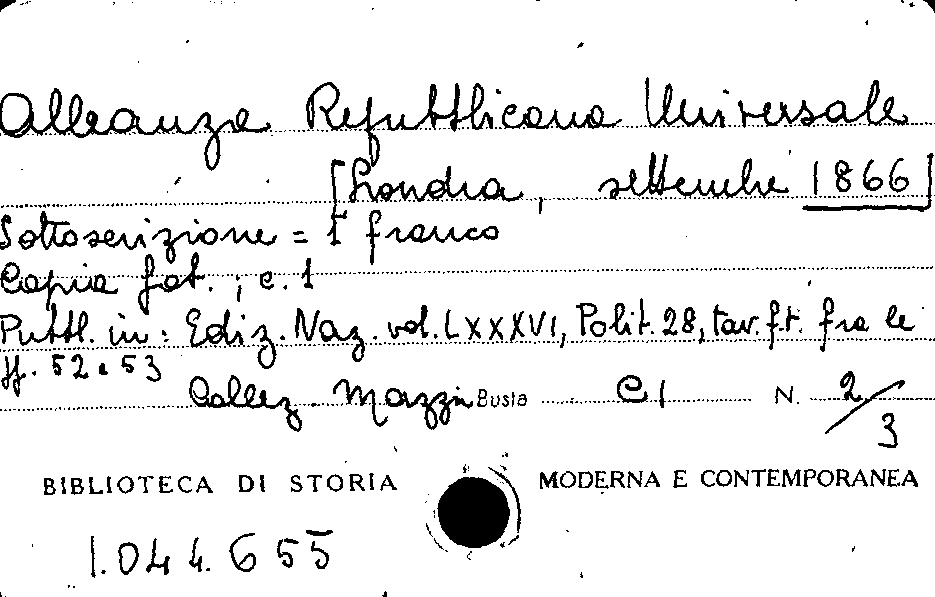 Alleanza Repubblicana Universale
[Londra, settembre 1866]
Sottoscrizione = 1 franco
Copia fot. ; c. 1
Pubbl. in: Ediz. Naz. vol. LXXXVI, Polit. 28, tav. f.t. fra le
ff. 52 e 53
Collez. Mazzini Busta C 1 N. 2/3
BIBLIOTECA DI STORIA MODERNA E CONTEMPORANEA
1.044.655